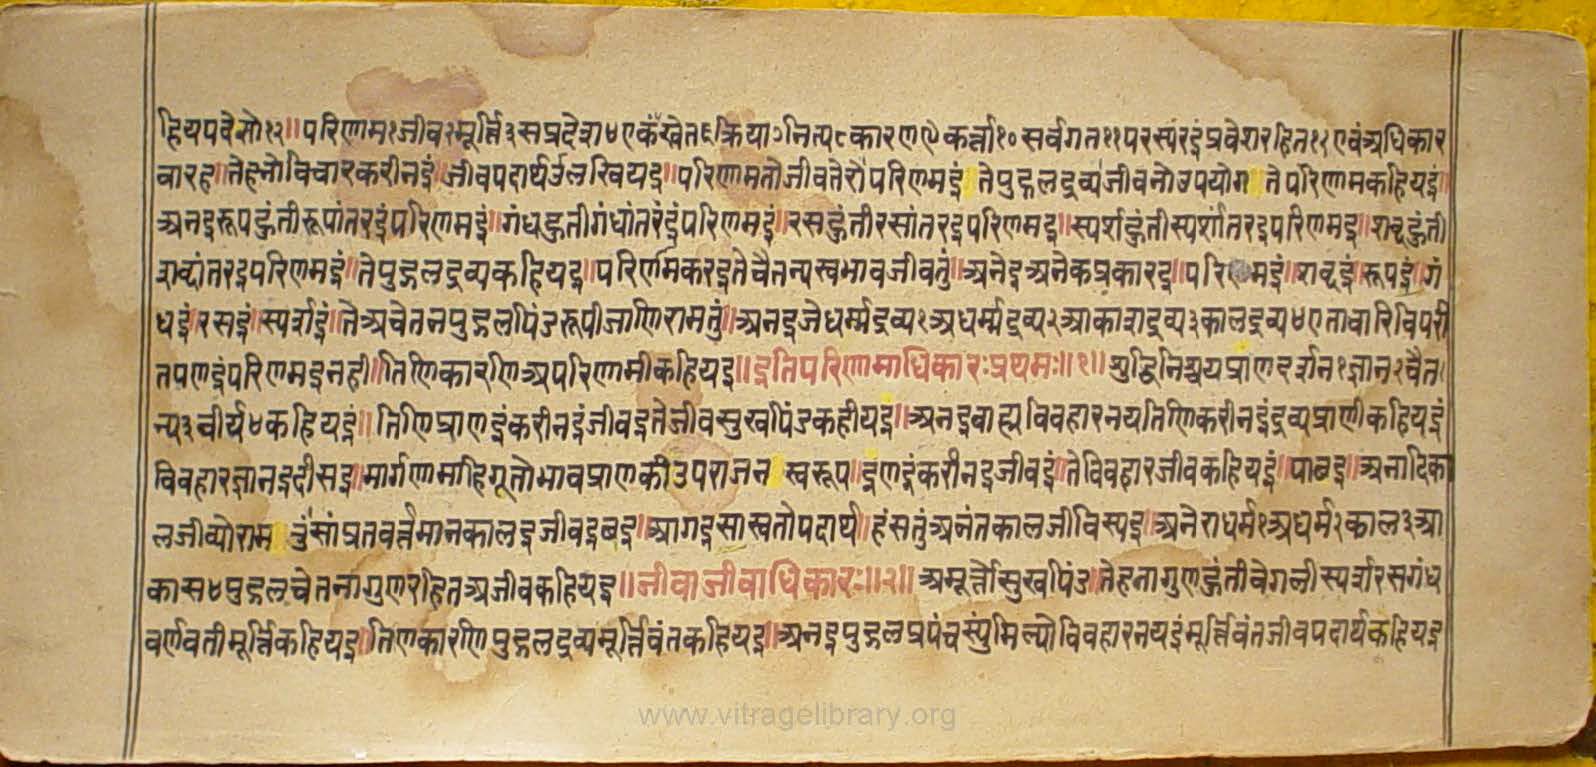 हियपवेसो१२॥परिणाम१जीव२मूर्त्ति३सप्रदेश४एक५खेत६क्रिया७नित्य८कारण९कर्त्ता१०सर्वगत११परस्परइंप्रवेशरहित१२एवंअधिकार
बारह॥तेहनोविचारकरीनइं॥जीवपदार्थउलखियइ॥परिणामतोजीवतेरौपरिणमइं तेपुद्गलद्रव्यजीवनोउपयोग तेपरिणामकहियइं॥
अनइरूपहुंतीरूपांतरइंपरिणमइं॥गंधहुतीगंधांतरइंपरिणमइं॥रसहुंतीरसांतरइपरिणमइ॥स्पर्शहुंतीस्पर्शांतरइपरिणमइ॥शब्दहुंती
शब्दांतरइपरिणमइं॥तेपुद्गलद्रव्यकहियइ॥परिणामकरइतेचैतन्यस्वभावजीवतुं॥अनेइअनेकप्रकारइ॥परिणमइं॥शब्दइं॥रूपइं॥गं
धइं॥रसइं॥स्पर्शइं॥तैअचेतनपुद्गलपिंडरूपीजाणिरामतुं॥अनइजेधर्म्मद्रव्य१अधर्म्मद्रव्य२आकाशद्रव्य३कालद्रव्य४एतावारिविपरी
तपणइंपरिणमइनही॥तिणिकारणिअपरिणामीकहियइ॥इतिपरिणामाधिकारःप्रथमः॥१॥शुद्धिनिश्चयप्राणदर्शन१ज्ञान२चैत
न्य३वीर्य४कहियइं॥तिणिप्राणइंकरीनइंजीवइतेजीवसुखपिंडकहीयइ॥अनइबाह्यविवहारनयतिणिकरीनइंद्रव्यप्राणीकहियइं
विवहारज्ञानइदीसइ॥मार्गणामाहिगूतोभावप्राणकीउपराजन स्वरूप॥इंणइंकरीनइजीवइं॥तेविवहारजीवकहियइं॥पाबइ॥अनादिका
लजीव्योराम तुंसांप्रतवर्त्तमानकालइजीवइबइ॥आगइसास्वतोपदार्थ॥हंसतुंअनंतकालजीविस्यइ॥अनेराधर्म१अधर्म२काल३आ
कास४पुद्गलचेतनागुणरहितअजीवकहियइ॥जीवाजीवाधिकारः॥२॥अमूर्त्तोसुखपिंड॥तेहनागुणहुंतीवेगलीस्पर्शरसगंध
वर्णवतीमूर्त्तिकहियइ॥तिणकारणिपुद्गलद्रव्यमूर्त्तिवंतकहियइ॥अनइपुद्गलप्रपंचस्युंमिल्योविवहारनयइंमूर्त्तिवंतजीवपदार्थकहियइ
www.vitragelibrary.org